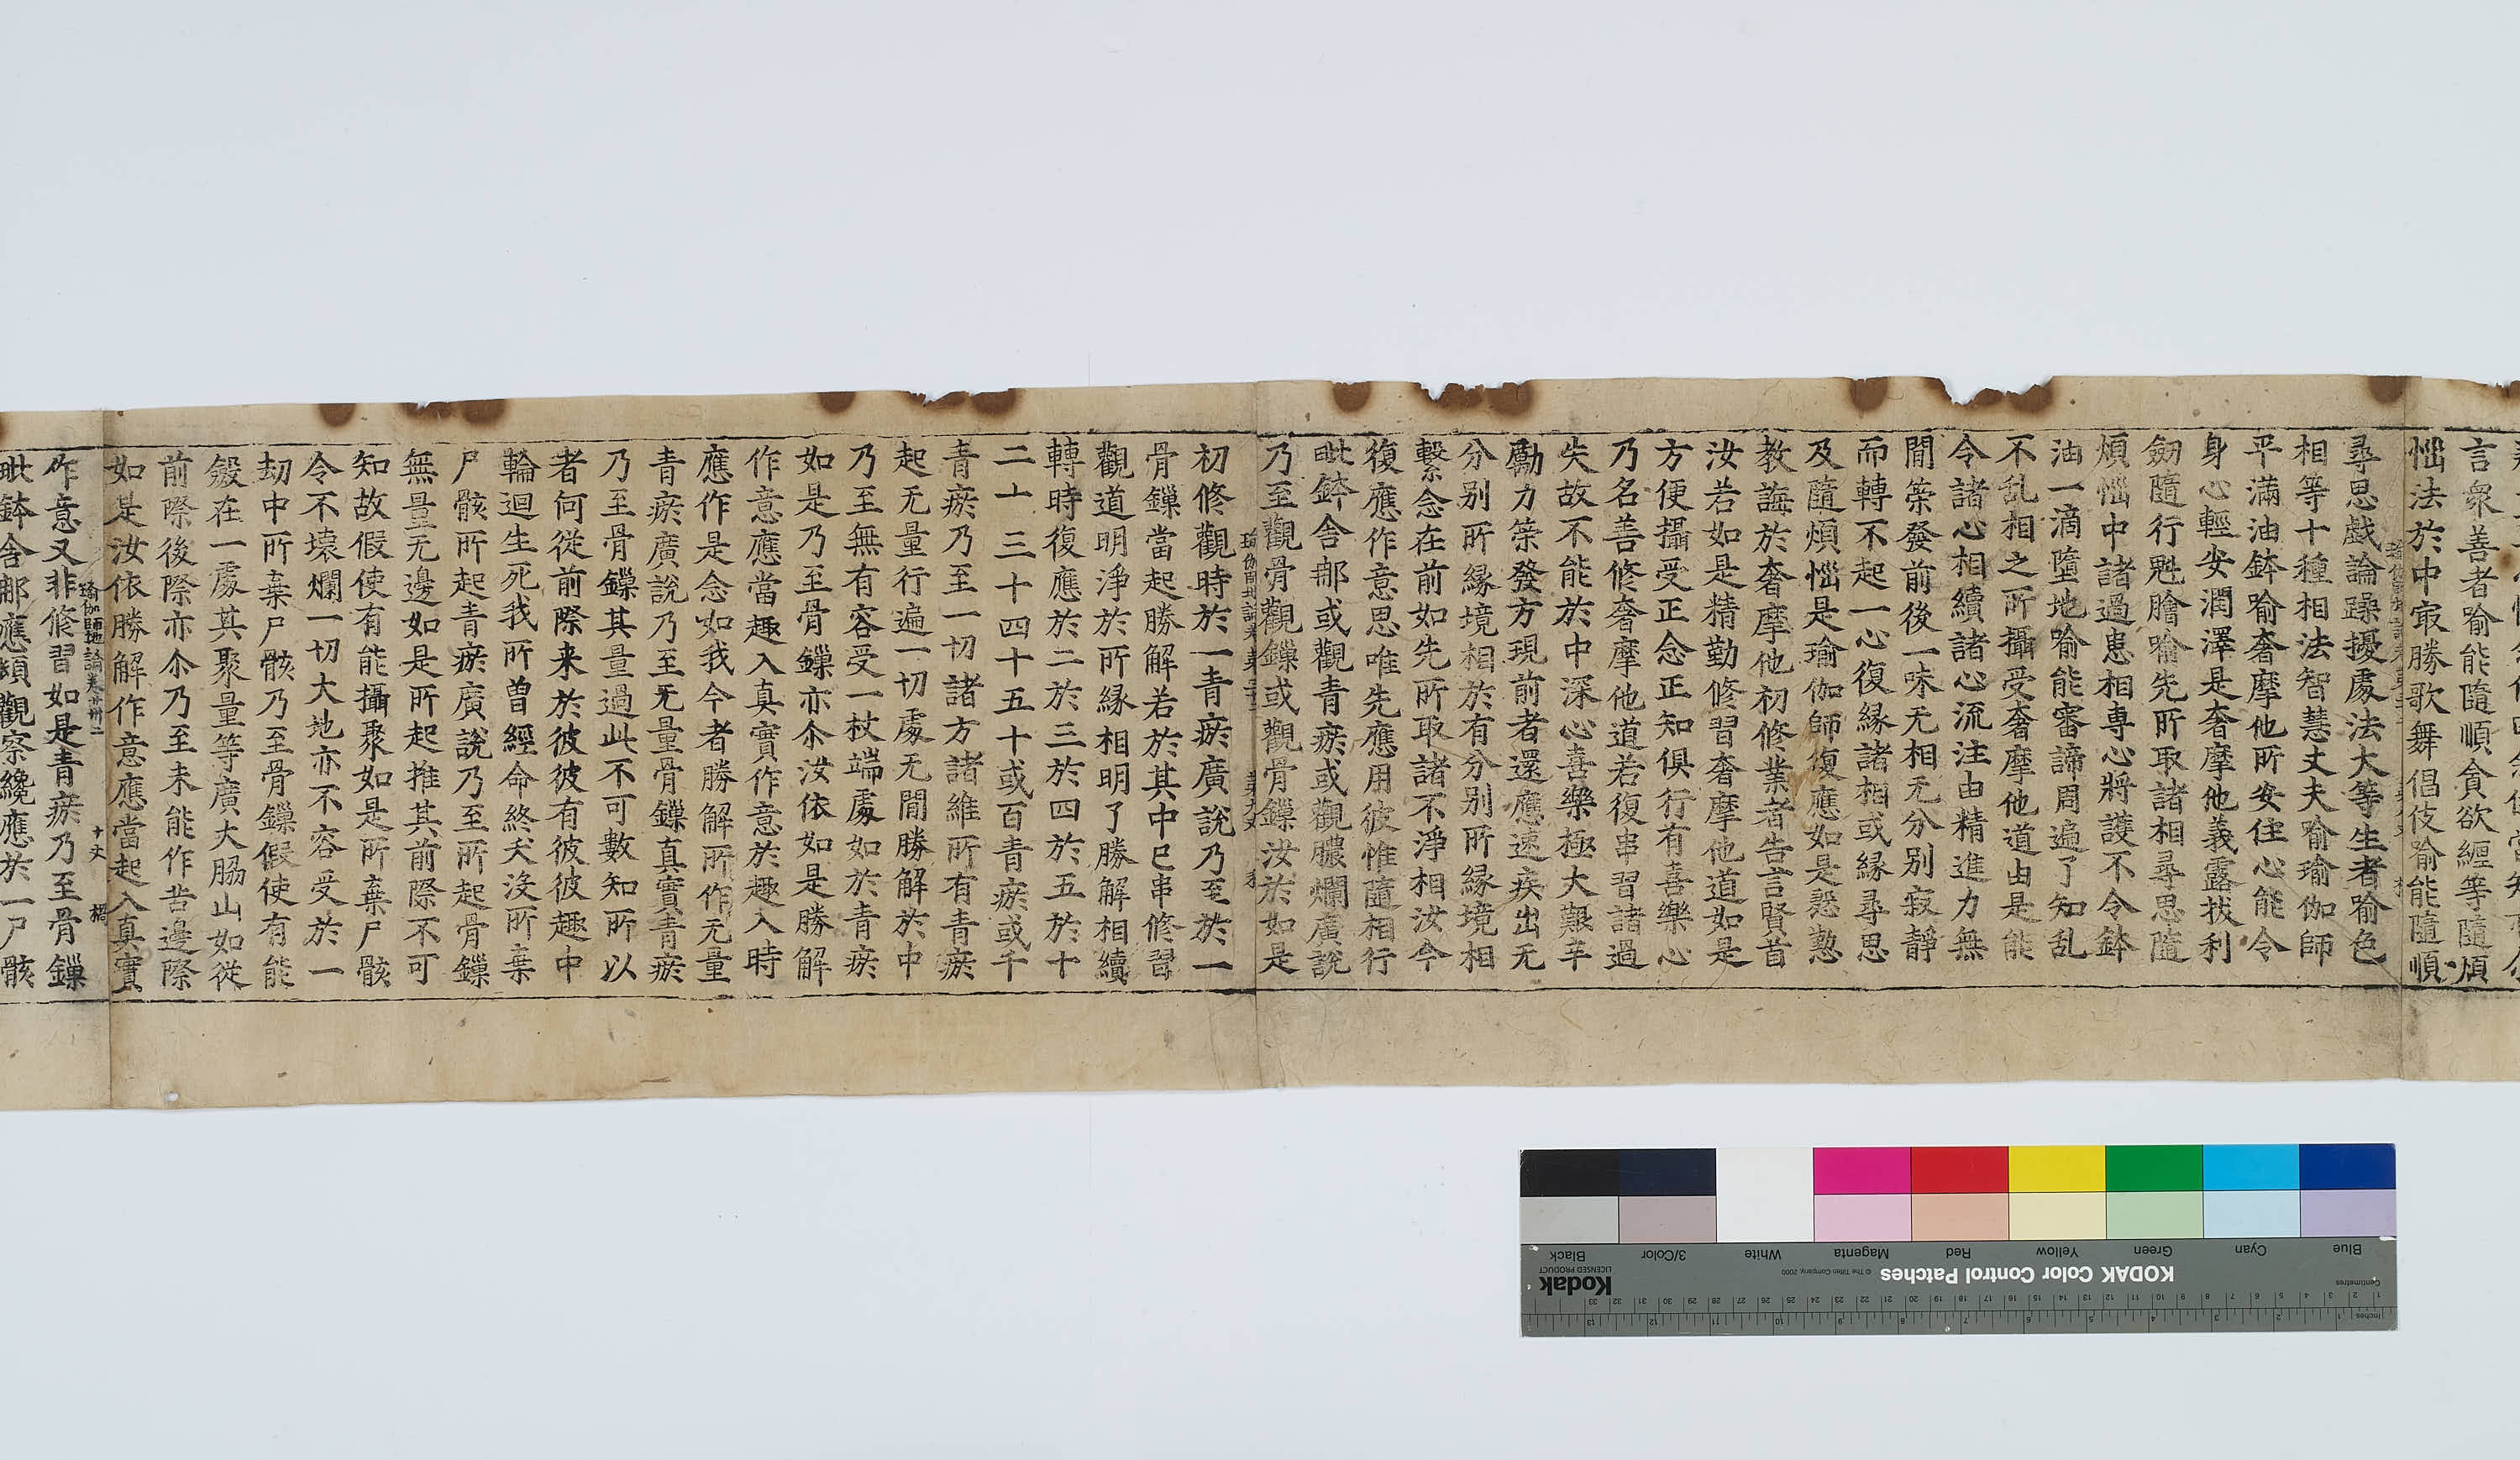 言衆善者喻能隨順貪欲纏等隨煩
惱法於中寂勝歌舞倡伎喻能隨順
尋思戲論躁擾處法大等生者喻色
相等十種相法智慧丈夫喻瑜伽師
平滿油鉢喻奢摩他所安住心能令
身心輕安潤澤是奢摩他義露拔利
劒隨行魁膾喻先所取諸相尋思隨
煩惱中諸過患相專心將護不令鉢
油一滴墮地喻能審諦周遍了知乱
不乱相之所攝受奢摩他道由是能
令諸心相續諸心流注由精進力無
間䇿發前後一味无相无分别寂靜
而轉不起一心復縁諸相或縁尋思
及隨煩惱是瑜伽師復應如是慇懃
教誨於奢摩他初修業者告言賢首
汝若如是精勤修習奢摩他道如是
方便攝受正念正知俱行有喜樂心
乃名善修奢摩他道若復串習諸過
失故不能於中深心喜樂極大艱辛
勵力䇿發方現前者還應速疾出无
分别所縁境相於有分别所縁境相
繫念在前如先所取諸不淨相汝今
復應作意思唯先應用彼惟隨相行
毗鉢舍那或觀青瘀或觀膿爛廣說
乃至觀骨觀鏁或觀骨鏁汝於如是
初修觀時於一青瘀廣說乃至於一
骨鏁當起勝解若於其中已串修習
觀道明淨於所縁相明了勝解相續
轉時復應於二於三於四於五於十
二十三十四十五十或百青瘀或千
青瘀乃至一切諸方諸維所有青瘀
起无量行遍一切處无間勝解於中
乃至無有容受一杖端處如於青瘀
如是乃至骨鏁亦尒汝依如是勝解
作意應當趣入真實作意於趣入時
應作是念如我今者勝解所作无量
青瘀廣說乃至无量骨鏁真實青瘀
乃至骨鏁其量過此不可數知所以
者何從前際来於彼彼有彼彼趣中
輪迴生死我所曽經命終夭没所棄
尸骸所起青瘀廣說乃至所起骨鏁
無量无邊如是所起推其前際不可
知故假使有能攝聚如是所棄尸骸
令不壊爛一切大地亦不容受於一
劫中所棄尸骸乃至骨鏁假使有能
斂在一處其聚量等廣大脇山如從
前際後際亦尒乃至未能作苦邊際
如是汝依勝解作意應當起入真實
瑜伽師地論卷 十丈
作意又非修習如是青瘀乃至骨鏁
毗鉢舍那應頻觀察纔應於一尸骸
KODAK Color Control Patches
© The Tiffen Company, 2000
Kodak
LICENSED PRODUCT
Blue Cyan Green Yellow Red Magenta White 3/Color Black
Centimetres
Inches